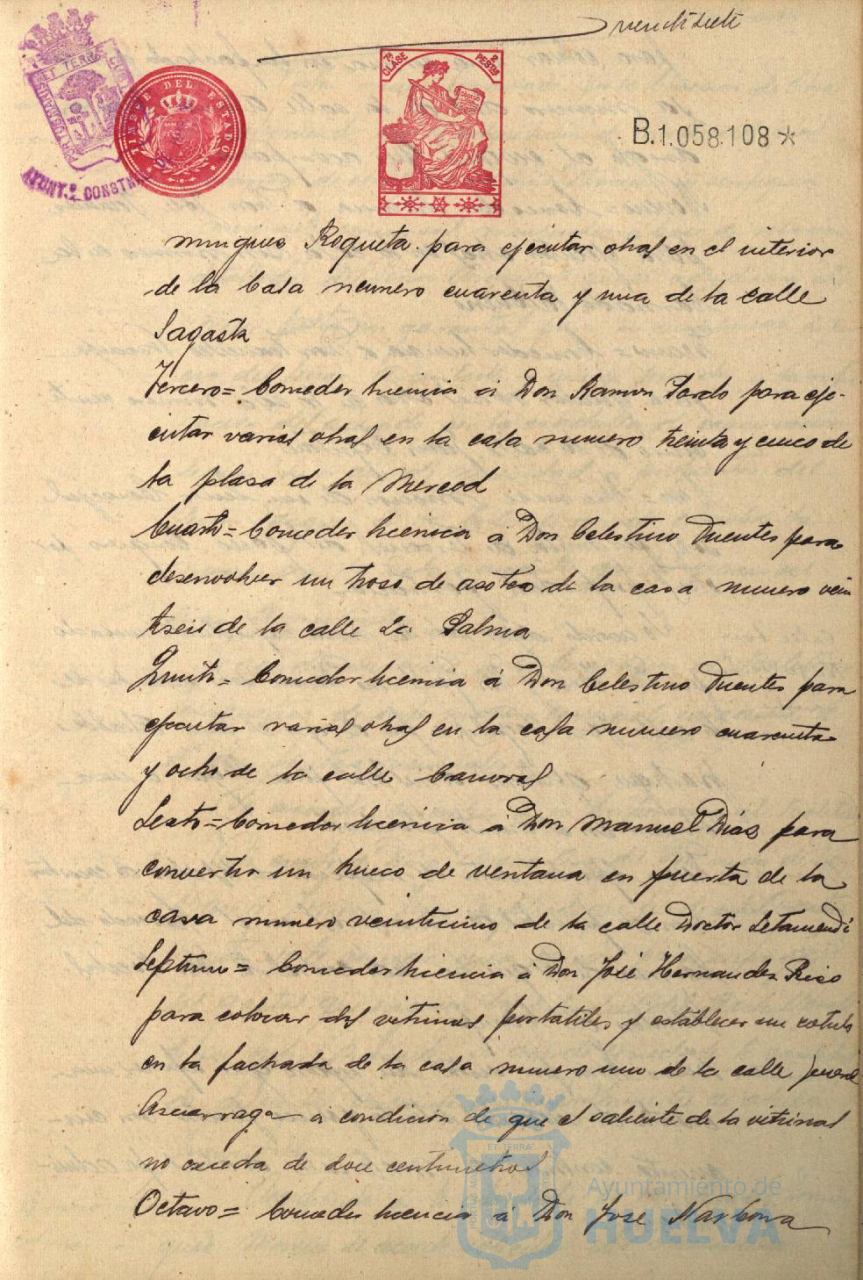 veintisiete
PORTUS MARIS ET TERRAE CUSTODIA
AYUNT.º CONSTNAL
TIMBRE DEL ESTADO
7ª CLASE 2 PESTAS
B.1.058.108*
minguez Roqueta para ejecutar obras en el interior
de la casa numero cuarenta y una de la calle
Sagasta
Tercero= Conceder licencia á Don Ramon Pardo para eje-
cutar varias obras en la casa numero treinta y cinco de
la plasa de la Merced
Cuarto= Conceder licencia á Don Celestino Fuentes para
desenvolver un troso de asotea de la casa numero vein
tiseis de la calle La Palma
Quinto= Conceder licencia á Don Celestino Fuentes para
ejecutar varias obras en la casa numero cuarenta
y ocho de la calle Canovas
Sexto= Conceder licencia á Don Manuel Dias para
convertir un hueco de ventana en puerta de la
casa numero veinticinco de la calle Doctor Letamendi
Septimo= Conceder licencia á Don José Hernandez Rico
para colocar dos vitrinas portatiles y establecer un rotulo
en la fachada de la casa numero uno de la calle General
Ascarraga a condición de que el saliente de la vitrinas
no exceda de doce centimetros
Octavo= Conceder licencia á Don José Narbona
Ayuntamiento de
HUELVA